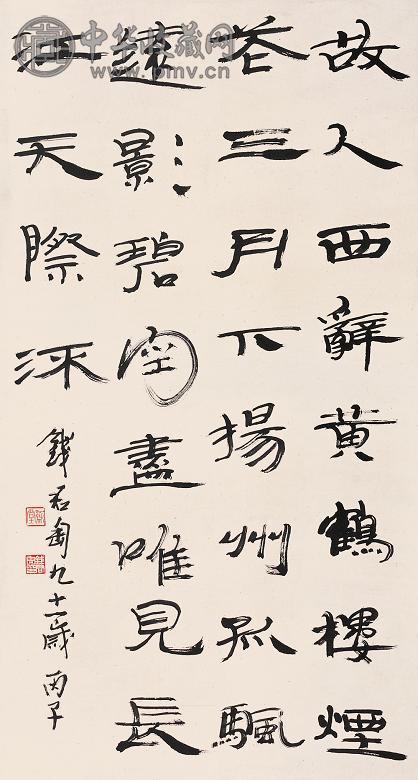 故人西辭黄鶴樓煙
花三月下揚州孤颿
遠影碧空盡唯見長
江天際流
錢君匋九十一歲 丙子
中华收藏网
www.pmv.cn